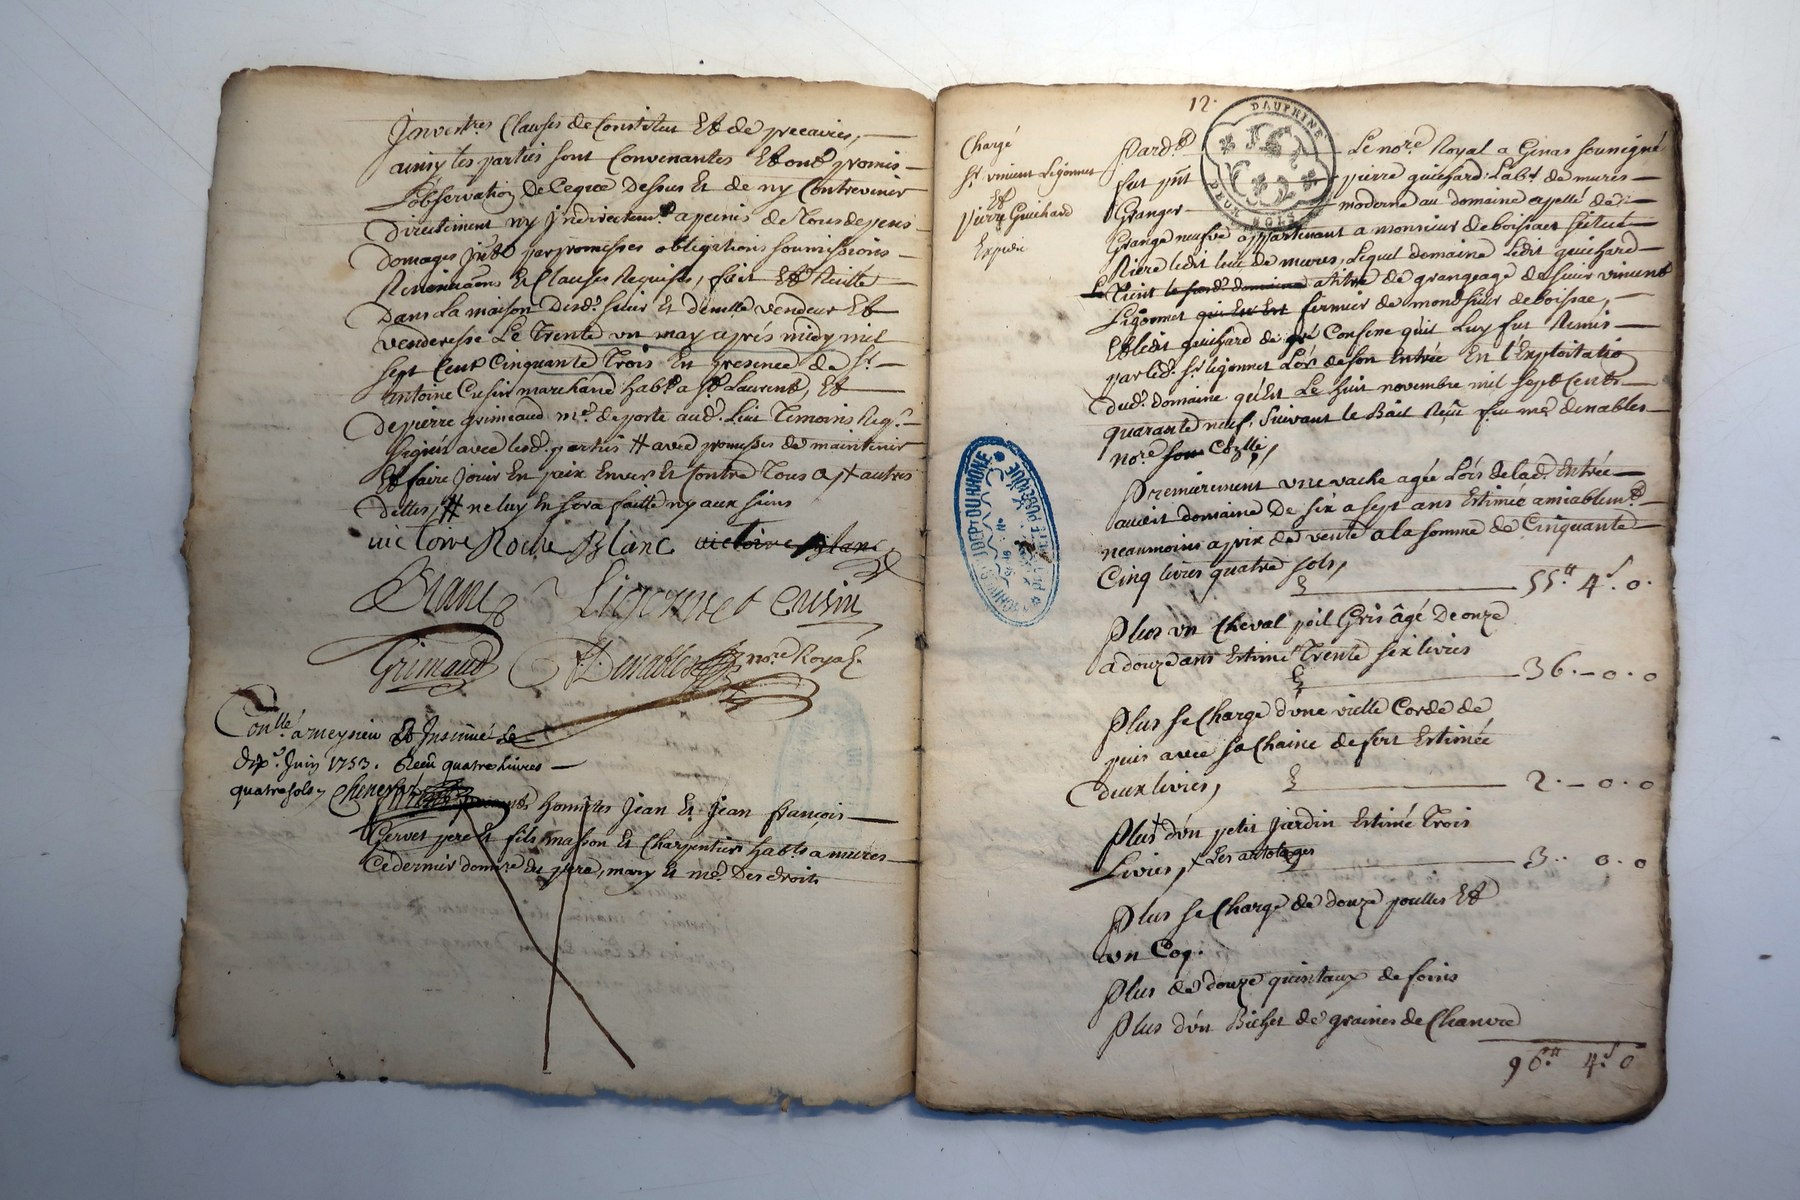 Clauses de Constitut Et de precaires,
ainsy les parties sont Convenantes Et ont promis
L'observation De Ceque Dessus Et de ny Contrevenir
Directement ny Indirectemt. a peinis de Tous depens
Domages par promesses obligations soumissions
Et Clauses Requises, fait Et
Dans La maison Desd. sieur Et demlle vendeur Et
venderesse Le Trente un may aprés midy mil
sept Cent Cinquante Trois En presence de Sr.
Antoine marchand habt. a St. Laurent, Et
De pierre Grimeaud aud. Lieu Temoins Req.
signés avec lesd. parties # avec promesses de maintenir
Et faire jouir En paix Envers Et Contre Tous a
# ne luy En sera faitte ny aux siens
victoire Roche Blanc victoire Blanc
Blanc Ligonnet
Grimaud nore Royal
Conllé a meysieu Et Insinué Le
Juin 1753. Receu quatre livres
quatre sols
hommes Jean Et Jean françois
pere Et fils masson Et Charpentier habts a mures
Ce dernier Comme pere, mary Et me. Des droits
12.
DAUPHINE
DEUX SOLS
Chargé
Sr. vincent Ligonnet
Et
Pierre Guichard
Expedié
Pardt. Le nore. Royal a Genas soussigné
fut pnt pierre guichard Labr. de mures
Granger moderne au domaine apellé de
Grange neufve appartenant a monsieur de boissac
Riere ledit lieu de mures, Lequel domaine Ledit guichard
Tient le susd. domaine a titre de grangeage de sieur vincent
Ligonnet qui En Est fermier de mondsieur de boissac,
Et Ledit guichard de gré Confesse qu'il Luy fut Remis
par Led. Sr ligonnet Lors de son Entrée En l'Exploitation
Dud. domaine qu'est Le huit novembre mil sept Cents
quarante neuf, suivant le Bail Reçu
nore
Premierement une vache agée Lors de lad. Entrée
audit domaine De six a sept ans Estimée amiablemt.
neanmoins a prix de vente a la somme de Cinquante
Cinq livres quatre sols, 55ll 4s. 0.
Plus un Cheval poil Gris âgé De onze
a douze ans Estimé Trente six livres 36.-0.0
Plus se Charge d'une vielle Corde de
puis avec sa Chaine de fert Estimée
deux livres, 2.-0.0
Plus d'un petit Jardin Estimé Trois
Livres, 3.. 0.0
Plus se Charge de douze poulles Et
un Coq.
Plus de douze quintaux de foins
Plus d'un Bichet de graines de Chanvre
96ll 4s 0